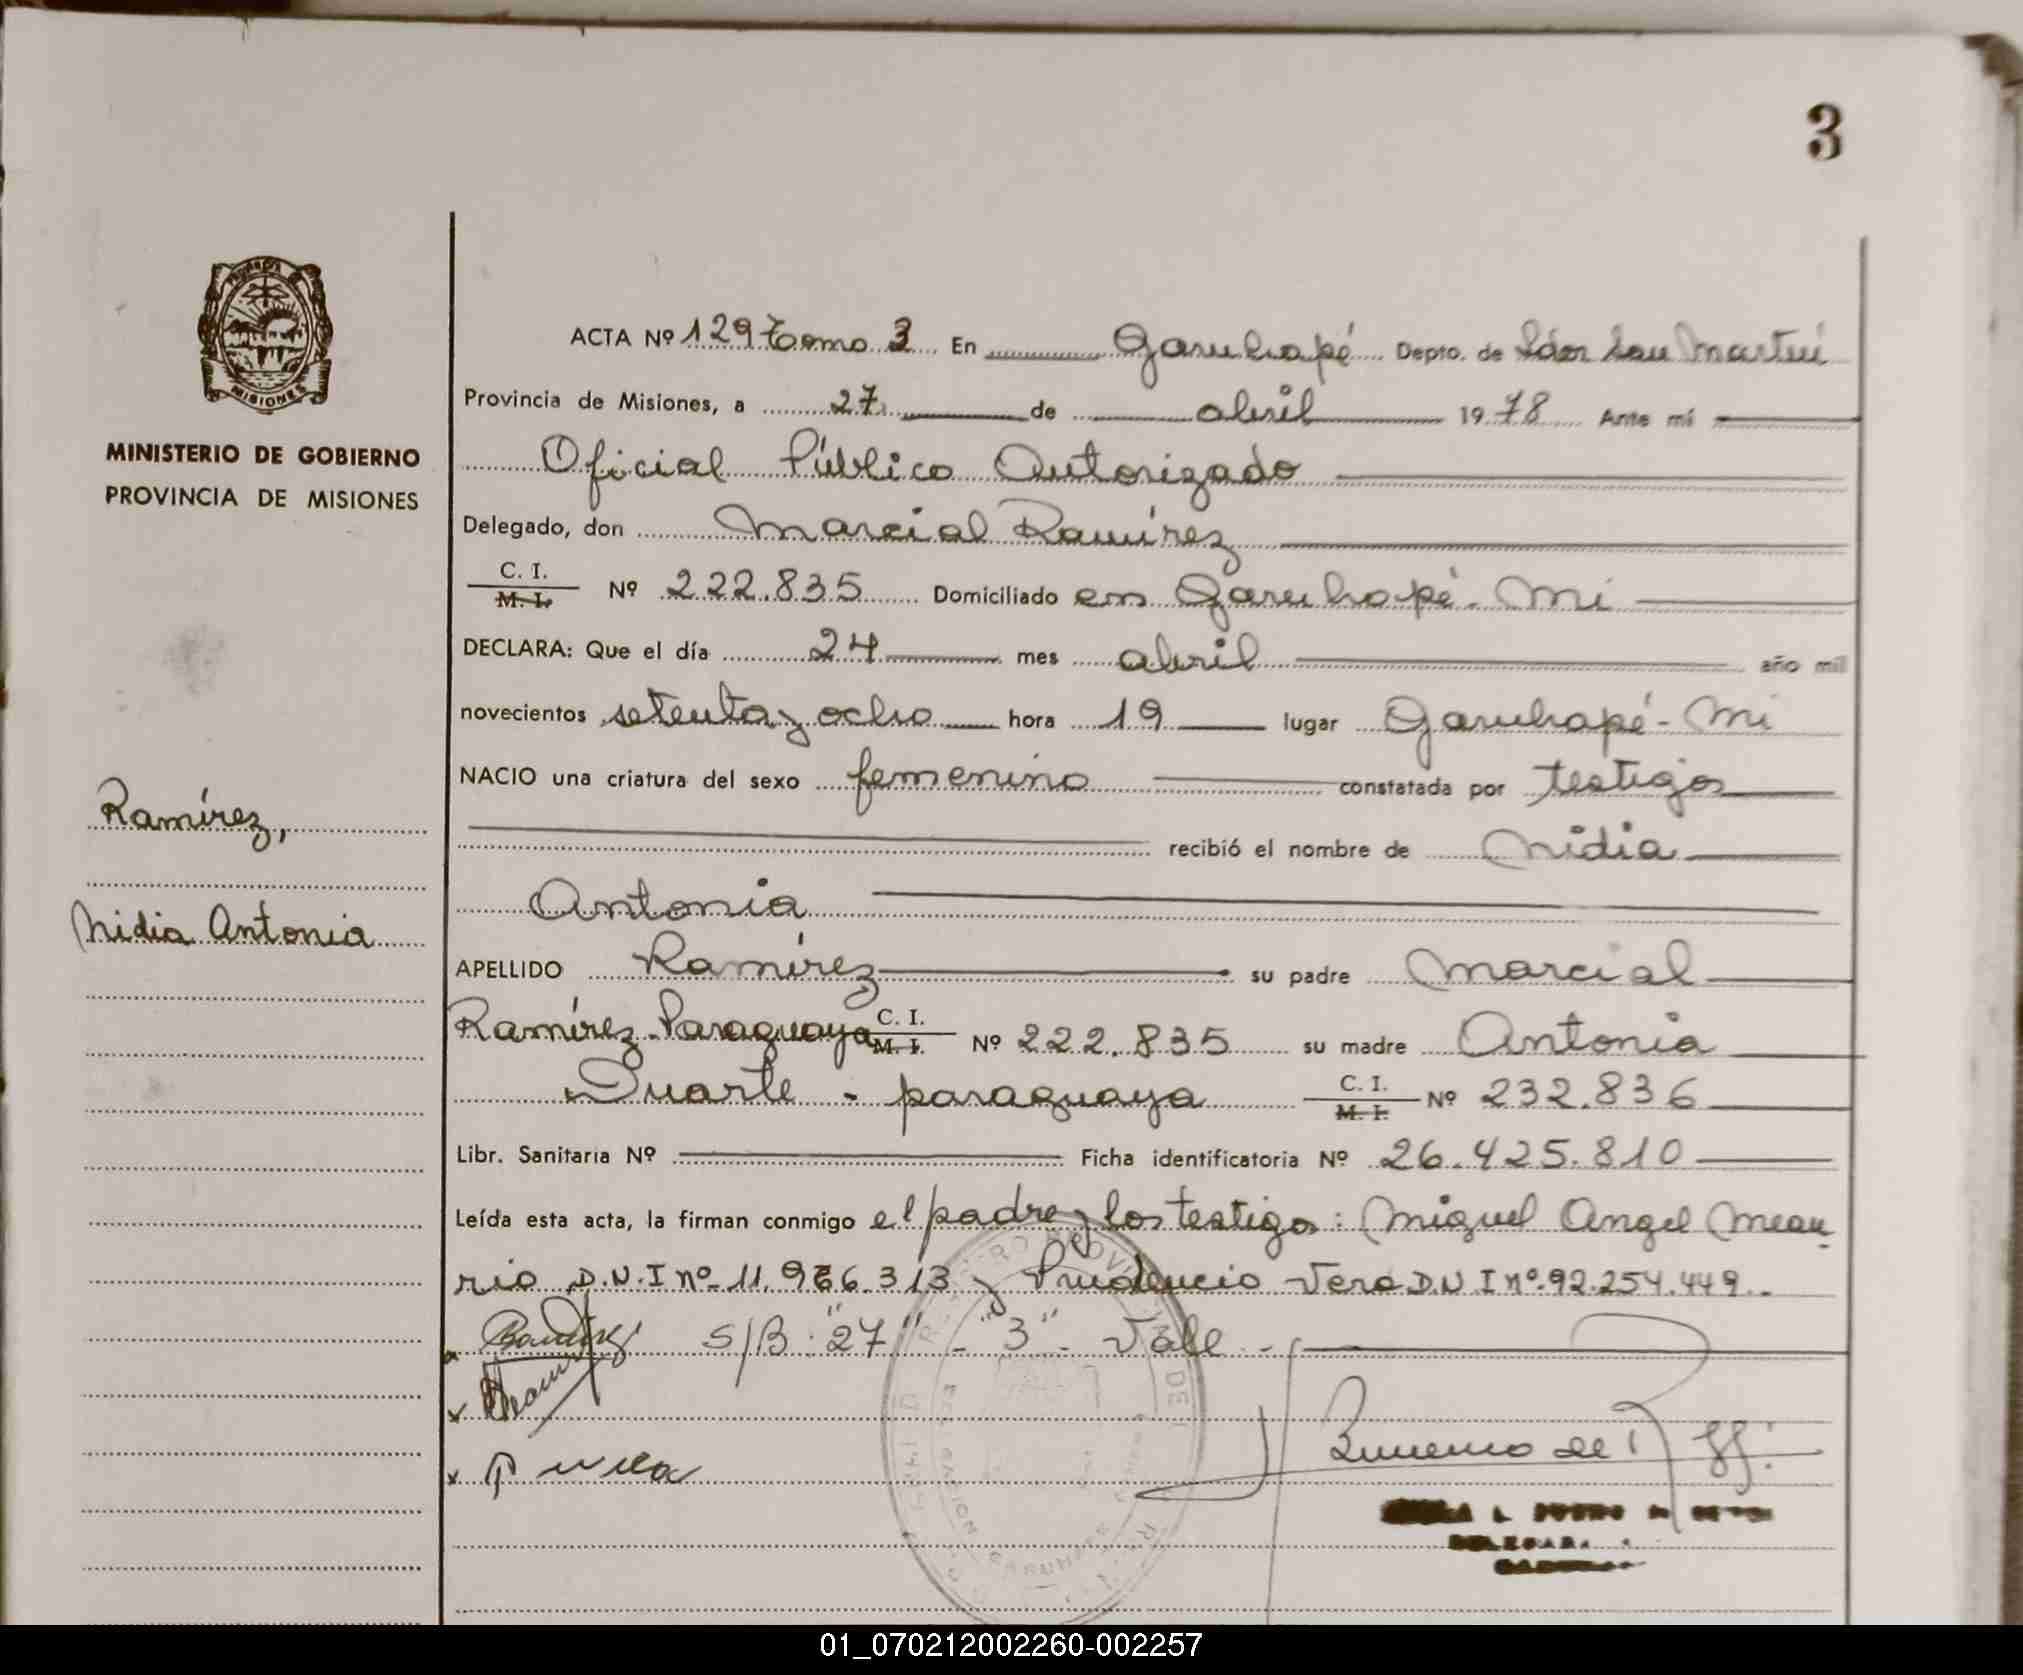 3
MINISTERIO DE GOBIERNO
PROVINCIA DE MISIONES
Ramírez,
Nidia Antonia
ACTA Nº 129 Tomo 3 En Garuhapé Depto. de Ldor San Martín
Provincia de Misiones, a 27 de abril 1978 Ante mí
Oficial Público Autorizado
Delegado, don Marcial Ramírez
C. I.
M. I. Nº 222.835 Domiciliado en Garuhapé - Mi
DECLARA: Que el día 24 mes abril año mil
novecientos setenta y ocho hora 19 lugar Garuhapé - Mi
NACIO una criatura del sexo femenino constatada por testigos
recibió el nombre de Nidia
Antonia
APELLIDO Ramírez su padre Marcial
Ramírez - Paraguaya C. I.
M. I. Nº 222.835 su madre Antonia
Duarte - paraguaya C. I.
M. I. Nº 232.836
Libr. Sanitaria Nº Ficha identificatoria Nº 26.425.810
Leída esta acta, la firman conmigo el padre y los testigos: Miguel Angel
D.N.I nº 11.966.313 y Prudencio Vera D.N I nº 92.254.449
S/B: "27" - "3" - Vale -
MISIONES
GARUHAPE
01_070212002260-002257